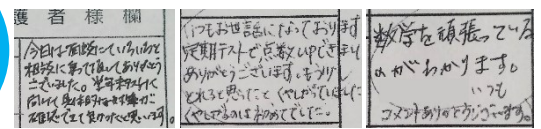 護者様欄
今日は面談でいろいろと
相談に乗って頂してありがとう
ございました。学年末テストに
向けて
確認でき
いつもお世話になっております
定期テストで点数UPできまし
ありがとうございます。もう少し
とれると思ったと くやしがっていました
くやしがるのは初めてでした。
数学を頑張っている
のがわかります。
いつも
コメントありがとうございます。